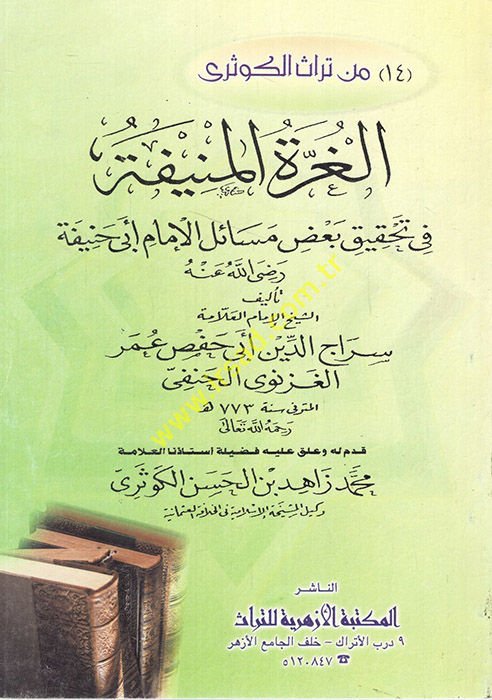 (١٤) من تراث الكوثرى
الغُرَّةُ المُنِيفَةُ
فِي تَحْقِيقِ بَعْضِ مَسَائِلِ الإِمَامِ أَبِى حَنِيفَة
رَضِىَ اللهُ عَنْهُ
تأليف
الشيخ الإمام العلامة
سِرَاجِ الدِّينِ أَبِى حَفْصٍ عُمَر
الغَزنَوِى الحَنَفِىّ
المتوفى سنة ٧٧٣ هـ
رَحِمَهُ اللهُ تَعَالَى
قدم له وعلق عليه فضيلة أستاذنا العلامة
مُحَمَّد زَاهِد بن الحَسَن الكَوثَرِى
وكيل المشيخة الإسلامية فى الخلافة العثمانية
الناشر
المكتبة الأزهرية للتراث
٩ درب الأتراك - خلف الجامع الأزهر
☎ ٥١٢٠٨٤٧